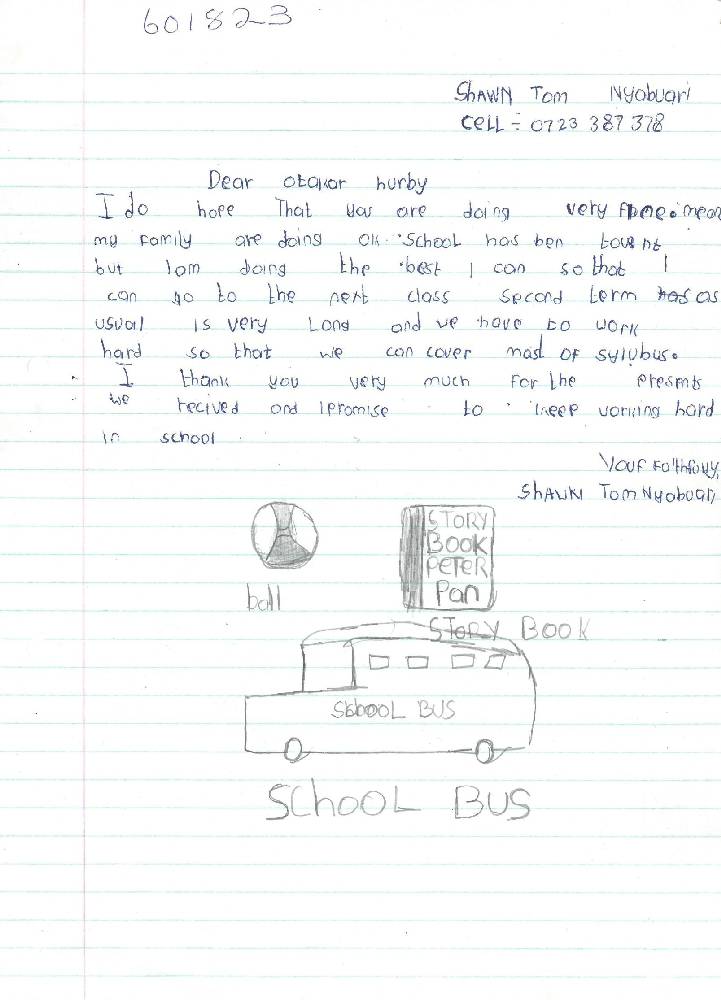 601823
Shawn Tom Nyabuari
Cell:- 0723 387 378
Dear otakar hurby
I do hope That you are doing very fine. mean
my family are doing ok. School has ben
but Iam doing the best I can so that I
can go to the next class second term has as
usual is very Long and we have to work
hard so that we can cover most of sylubus.
I thank you very much for the presents
we recived and Ipromise to keep working hard
in school
Your Faithfuly,
Shawn Tom Nyabuari
STORY
BOOK
PETER
Pan
ball
STORY BOOK
SChOOL BUS
SChOOL BUS